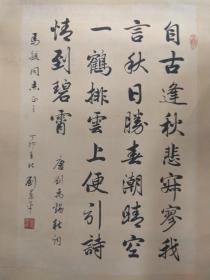 自古逢秋悲寂寥我
言秋日勝春潮晴空
一鶴排雲上便引詩
情到碧霄 唐劉禹錫秋詞
馬 同志正之 丁卯 劉